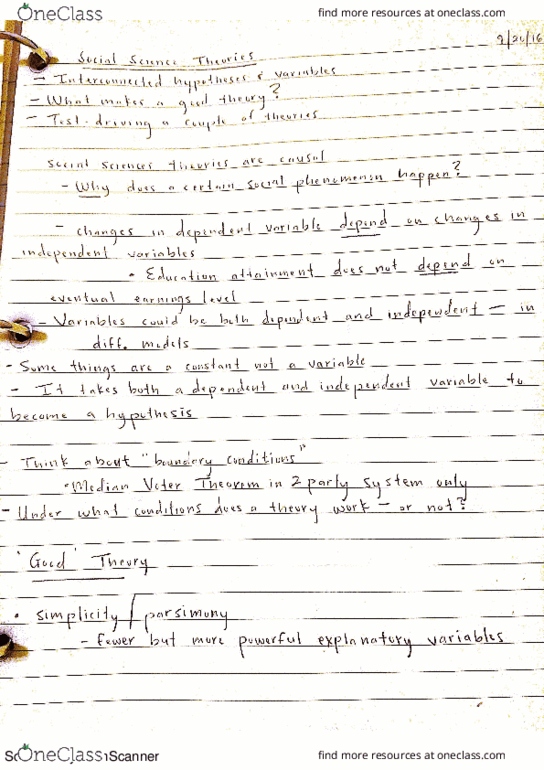 OneClass
find more resources at oneclass.com
9/20/16
Social Science Theories
- Interconnected hypotheses & variables
- What makes a good theory?
- Test-driving a couple of theories
social sciences theories are causal
- Why does a certain social phenomenon happen?
- changes in dependent variable depend on changes in
independent variables
• Education attainment does not depend on
eventual earnings level
- Variables could be both dependent and independent - in
diff. models
- Some things are a constant not a variable
- It takes both a dependent and independent variable to
become a hypothesis
- Think about "boundary conditions"
• Median Voter Theorem in 2 party system only
- Under what conditions does a theory work - or not?
'Good' Theory
• simplicity/parsimony
- fewer but more powerful explanatory variables
OneClass Scanner
find more resources at oneclass.com